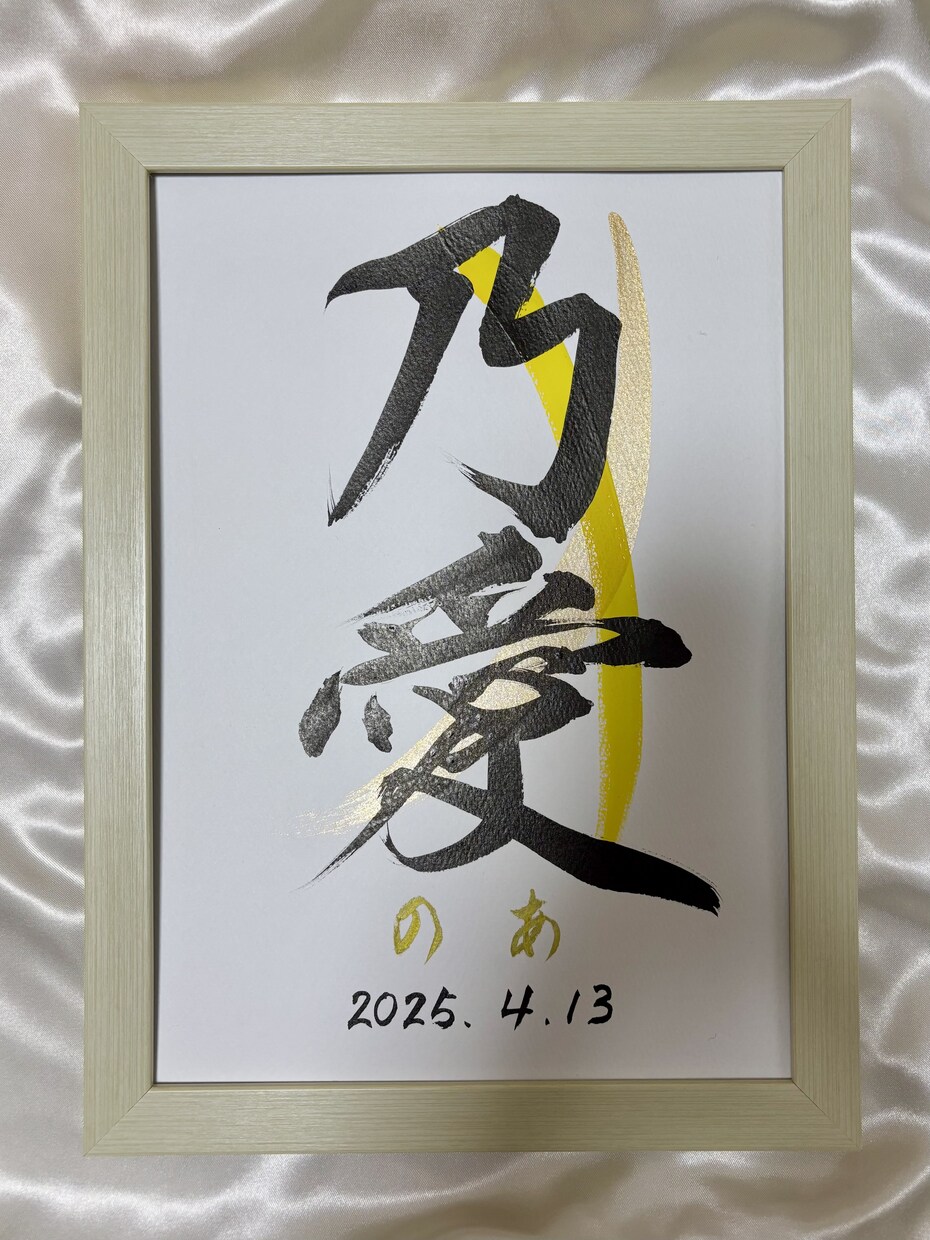 乃愛
のあ
2025.4.13